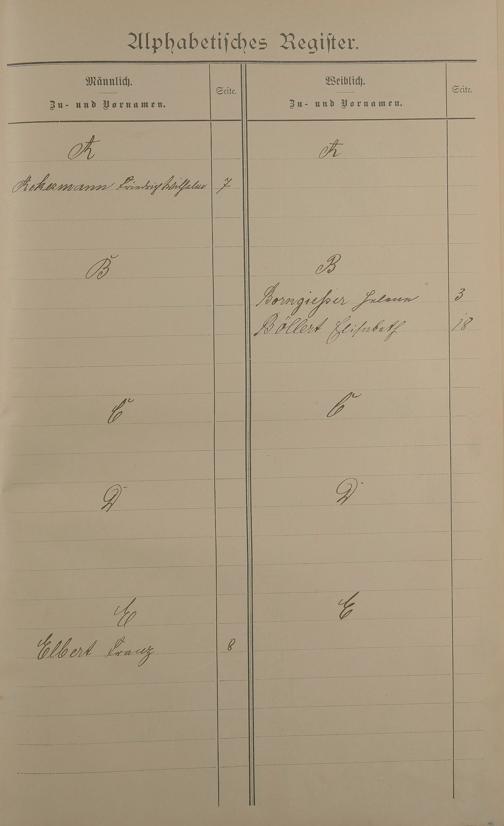 Alphabetisches Register.
Männlich.
Zu- und Vornamen.
Seite.
Weiblich.
Zu- und Vornamen.
Seite.
A
Ackermann Friedrich Wilhelm 7
B
C
D
E
Elbert Franz 8
A
B
Borngießer Helene 3
Böllert Elisabeth 18
C
D
E